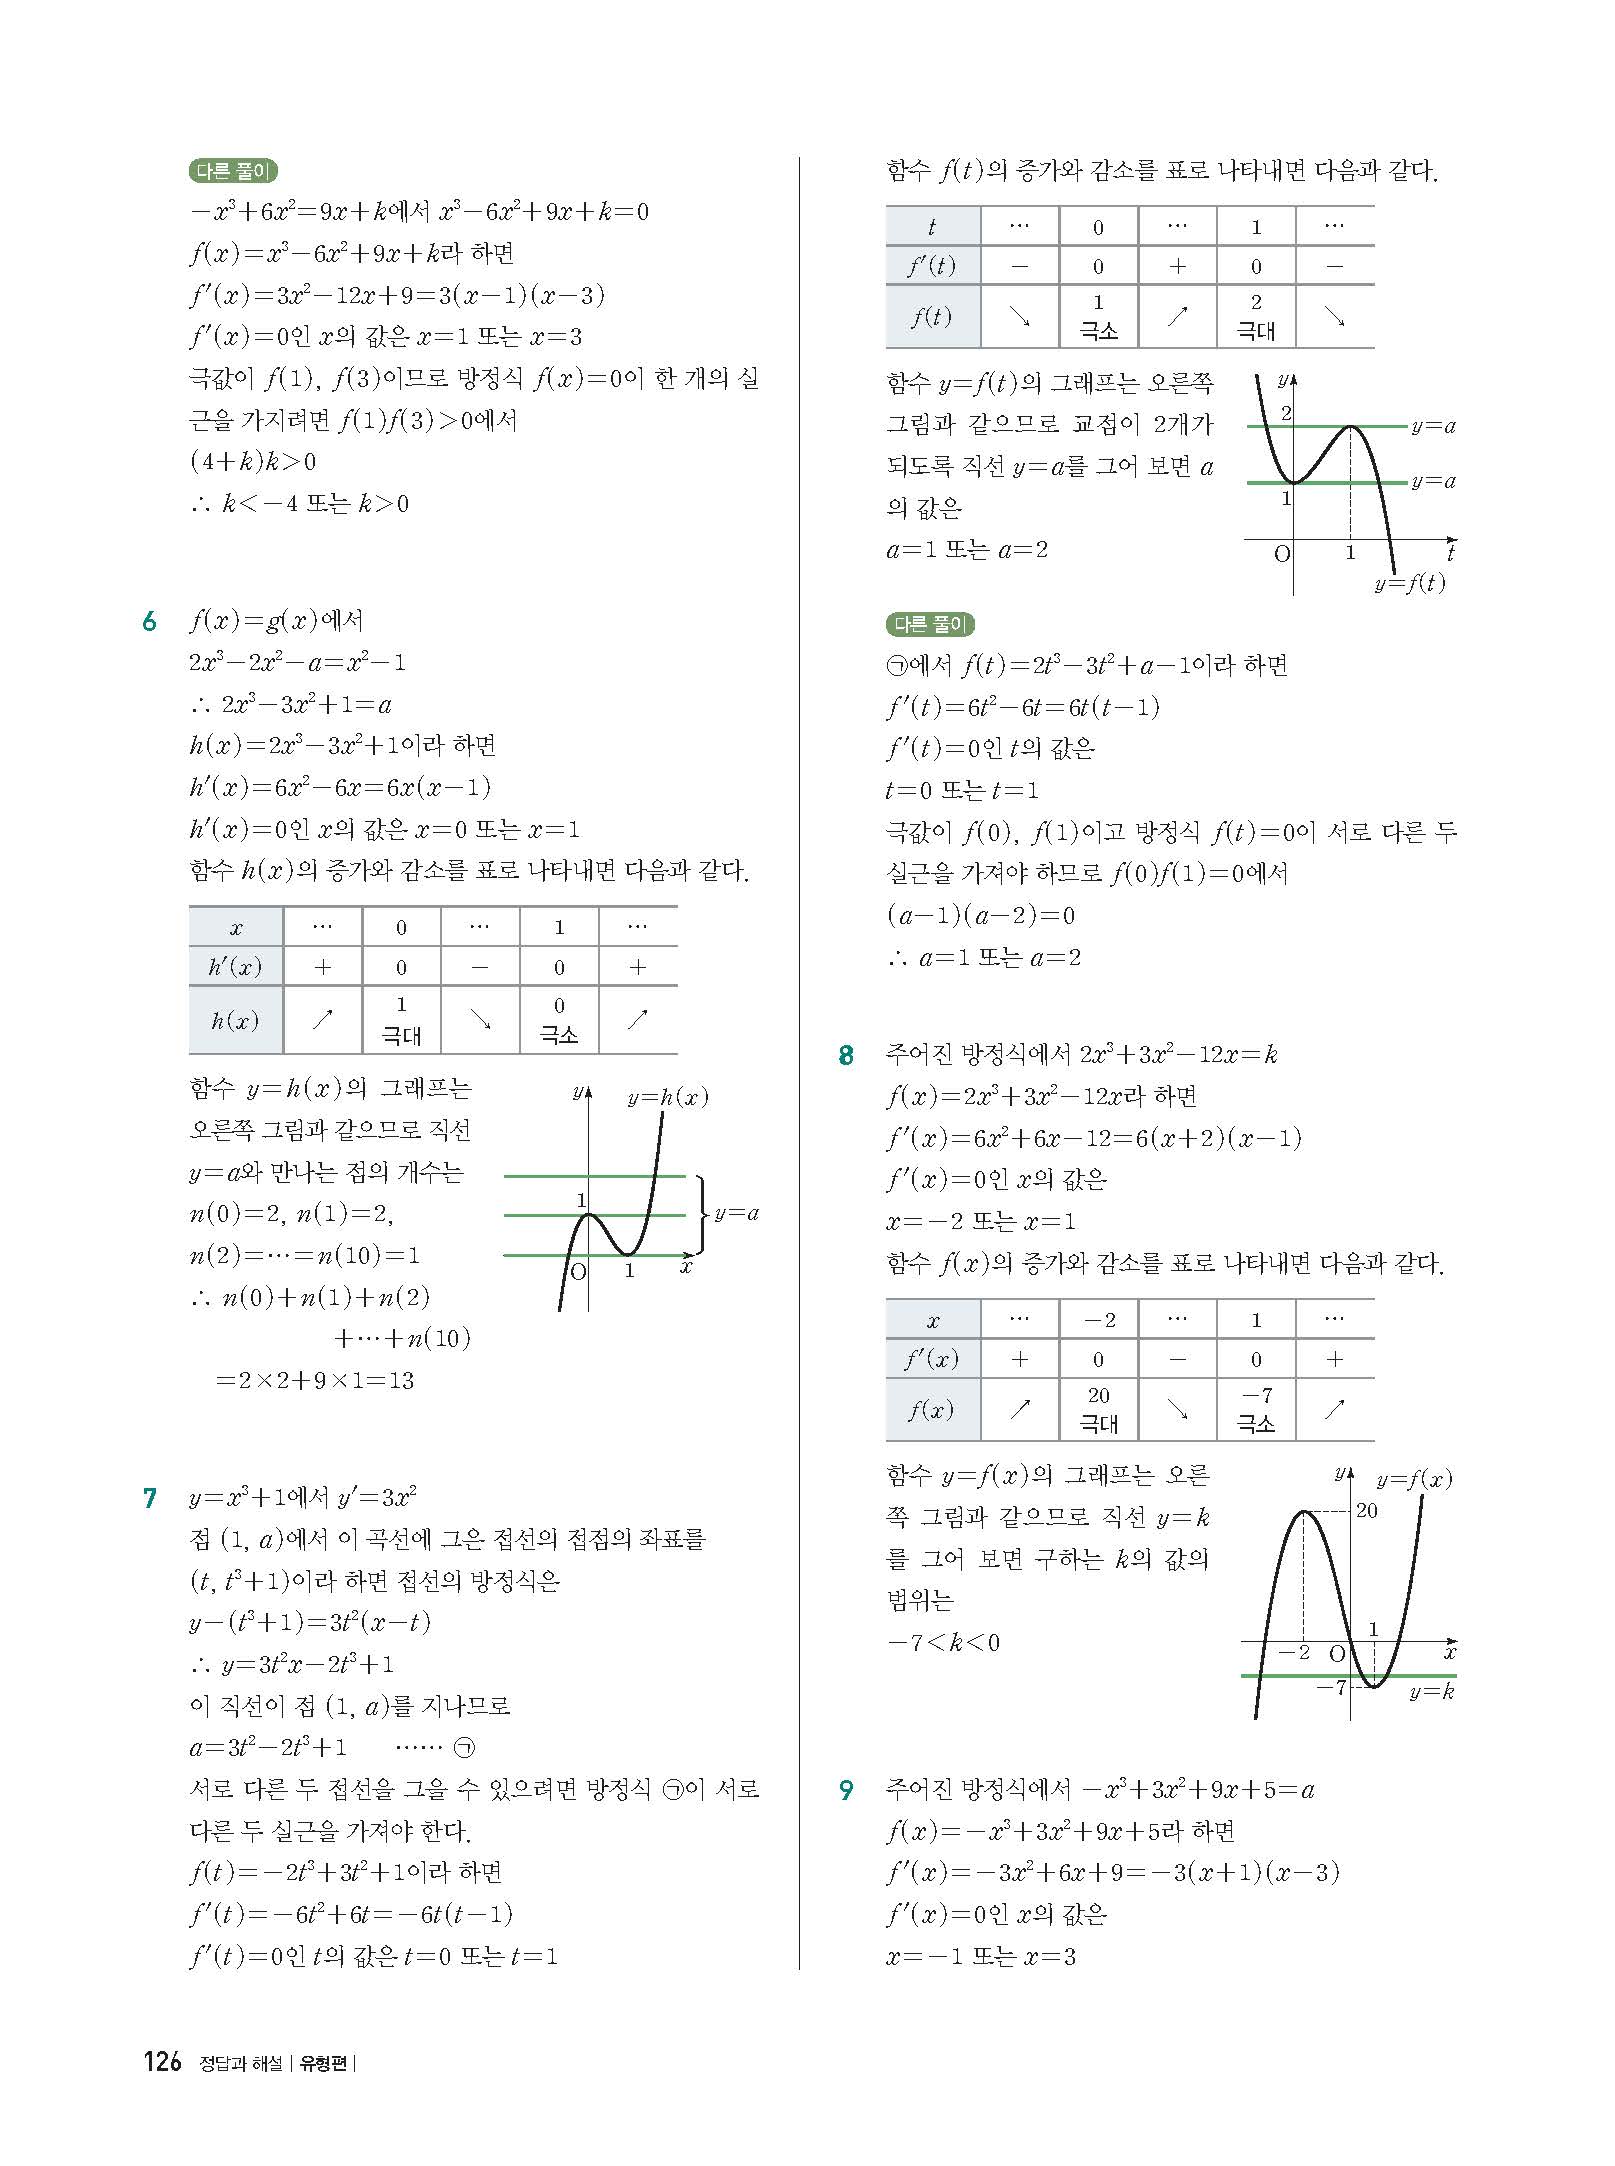 다른 풀이
−x³+6x²=9x+k에서 x³−6x²+9x+k=0
f(x)=x³−6x²+9x+k라 하면
f′(x)=3x²−12x+9=3(x−1)(x−3)
f′(x)=0인 x의 값은 x=1 또는 x=3
극값이 f(1), f(3)이므로 방정식 f(x)=0이 한 개의 실
근을 가지려면 f(1)f(3)>0에서
(4+k)k>0
∴ k<−4 또는 k>0
6 f(x)=g(x)에서
2x³−2x²−a=x²−1
∴ 2x³−3x²+1=a
h(x)=2x³−3x²+1이라 하면
h′(x)=6x²−6x=6x(x−1)
h′(x)=0인 x의 값은 x=0 또는 x=1
함수 h(x)의 증가와 감소를 표로 나타내면 다음과 같다.
x ⋯ 0 ⋯ 1 ⋯
h′(x) + 0 − 0 +
h(x) ↗ 1 극대 ↘ 0 극소 ↗
함수 y=h(x)의 그래프는
오른쪽 그림과 같으므로 직선
y=a와 만나는 점의 개수는
n(0)=2, n(1)=2,
n(2)=⋯=n(10)=1
∴ n(0)+n(1)+n(2)
+⋯+n(10)
=2×2+9×1=13
y y=h(x)
1
y=a
O 1 x
7 y=x³+1에서 y′=3x²
점 (1, a)에서 이 곡선에 그은 접선의 접점의 좌표를
(t, t³+1)이라 하면 접선의 방정식은
y−(t³+1)=3t²(x−t)
∴ y=3t²x−2t³+1
이 직선이 점 (1, a)를 지나므로
a=3t²−2t³+1 ⋯⋯ ㉠
서로 다른 두 접선을 그을 수 있으려면 방정식 ㉠이 서로
다른 두 실근을 가져야 한다.
f(t)=−2t³+3t²+1이라 하면
f′(t)=−6t²+6t=−6t(t−1)
f′(t)=0인 t의 값은 t=0 또는 t=1
함수 f(t)의 증가와 감소를 표로 나타내면 다음과 같다.
t ⋯ 0 ⋯ 1 ⋯
f′(t) − 0 + 0 −
f(t) ↘ 1 극소 ↗ 2 극대 ↘
함수 y=f(t)의 그래프는 오른쪽
그림과 같으므로 교점이 2개가
되도록 직선 y=a를 그어 보면 a
의 값은
a=1 또는 a=2
y
2
y=a
y=a
1
O 1 t
y=f(t)
다른 풀이
㉠에서 f(t)=2t³−3t²+a−1이라 하면
f′(t)=6t²−6t=6t(t−1)
f′(t)=0인 t의 값은
t=0 또는 t=1
극값이 f(0), f(1)이고 방정식 f(t)=0이 서로 다른 두
실근을 가져야 하므로 f(0)f(1)=0에서
(a−1)(a−2)=0
∴ a=1 또는 a=2
8 주어진 방정식에서 2x³+3x²−12x=k
f(x)=2x³+3x²−12x라 하면
f′(x)=6x²+6x−12=6(x+2)(x−1)
f′(x)=0인 x의 값은
x=−2 또는 x=1
함수 f(x)의 증가와 감소를 표로 나타내면 다음과 같다.
x ⋯ −2 ⋯ 1 ⋯
f′(x) + 0 − 0 +
f(x) ↗ 20 극대 ↘ −7 극소 ↗
함수 y=f(x)의 그래프는 오른
쪽 그림과 같으므로 직선 y=k
를 그어 보면 구하는 k의 값의
범위는
−7<k<0
y y=f(x)
20
1
−2 O x
−7 y=k
9 주어진 방정식에서 −x³+3x²+9x+5=a
f(x)=−x³+3x²+9x+5라 하면
f′(x)=−3x²+6x+9=−3(x+1)(x−3)
f′(x)=0인 x의 값은
x=−1 또는 x=3
126 정답과 해설 | 유형편 |